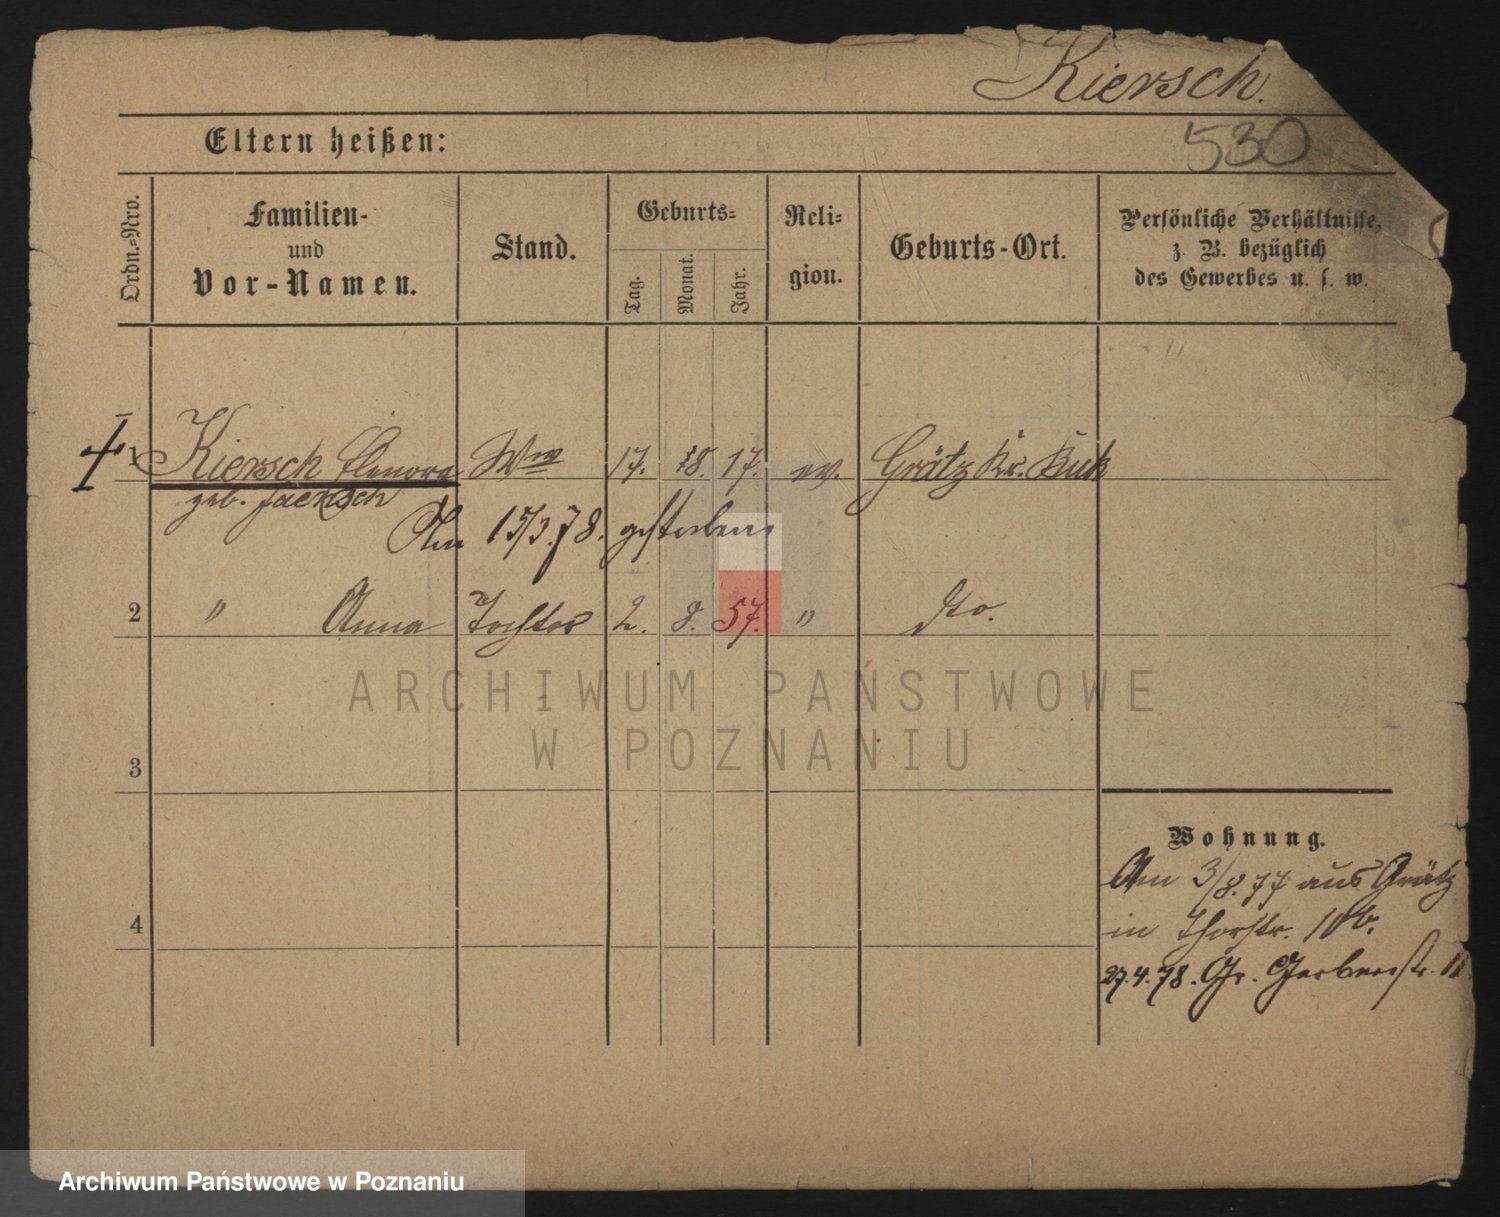 Kiersch.
530
Eltern heißen:
Ordn.-Nro.
Familien-
und
Vor-Namen.
Stand.
Geburts-
Tag.
Monat.
Jahr.
Reli-
gion.
Geburts-Ort.
Persönliche Verhältnisse,
z. B. bezüglich
des Gewerbes u. s. w.
1 Kiersch Elenora Wwe 17. 17. ev. Grätz Kr. Buk
geb.
Am 15/3.78. gestorben
2 " Anna Tochter 2. 8. 57. " dto.
ARCHIWUM PAŃSTWOWE
W POZNANIU
3
Wohnung.
Am 3/8.77 aus Grätz
in Thorstr. 10b.
4
27.4.78. Gr. Gerberstr.
Archiwum Państwowe w Poznaniu